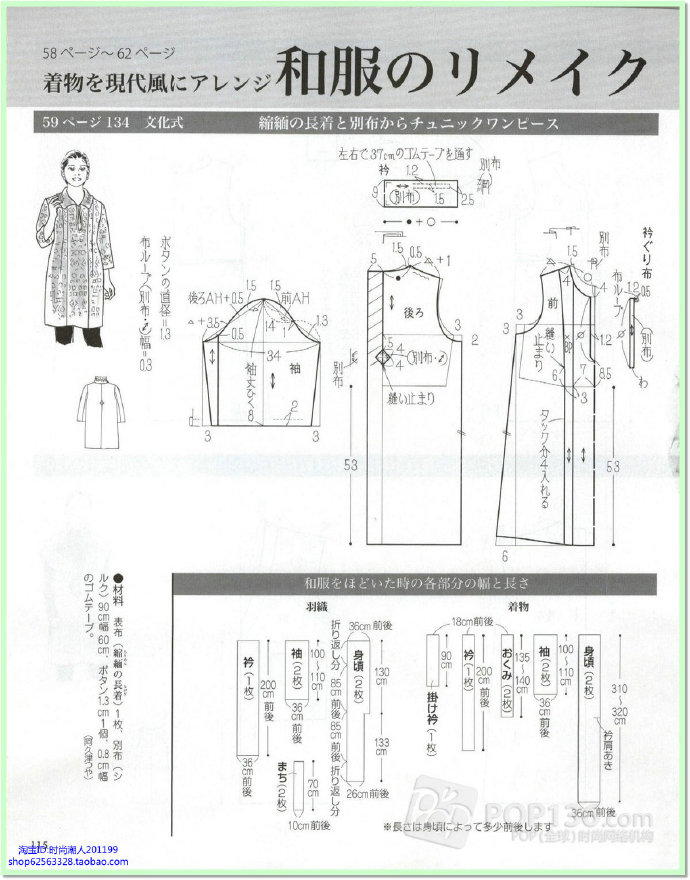 58ページ〜62ページ
着物を現代風にアレンジ 和服のリメイク
59ページ134 文化式 縮緬の長着と別布からチュニックワンピース
左右で37cmのゴムテープを通す
衿
1.2
別布
(綱)
9
(別布)
1.5
2.5
●+○
ボタンの直径=1.3
布ループ(別布・幅=0.3
1.5 1.5
後ろAH+0.5
前AH
△+3.5
0.5
14
1
1.3
34
袖丈ひく8
袖
2
3
3
5
1.5
0.5
△+1
後ろ
3
2
別布
5
4
4
(別布・
縫い止まり
53
1.5
別布
4
4
前
3
縫い止まり
BP
1.2
6
7
8.5
3
タック分4入れる
53
6
衿ぐり布
布ループ
1.2
0.5
(別布)
わ
●材料 表布(縮緬の長着)1枚、別布(シ
ルク)90cm幅60cm、ボタン1.3cm1個、0.8cm幅
のゴムテープ。
(阿久津つや)
和服をほどいた時の各部分の幅と長さ
羽織
衿(1枚)
200cm前後
36cm前後
袖(2枚)
100〜110cm
36cm前後
まち(2枚)
70cm
10cm前後
36cm前後
折り返し分
85cm前後
85cm前後
折り返し分
身頃(2枚)
130cm
133cm
26cm前後
着物
18cm前後
90cm
掛け衿(1枚)
衿(1枚)
200cm前後
おくみ(2枚)
135〜140cm
袖(2枚)
100〜110cm
36cm前後
身頃(2枚)
310〜320cm
衿肩あき
36cm前後
※長さは身頃によって多少前後します
POP136.com
POP(全球)时尚网络机构
115
淘宝ID:时尚潮人201199
shop62563328.taobao.com